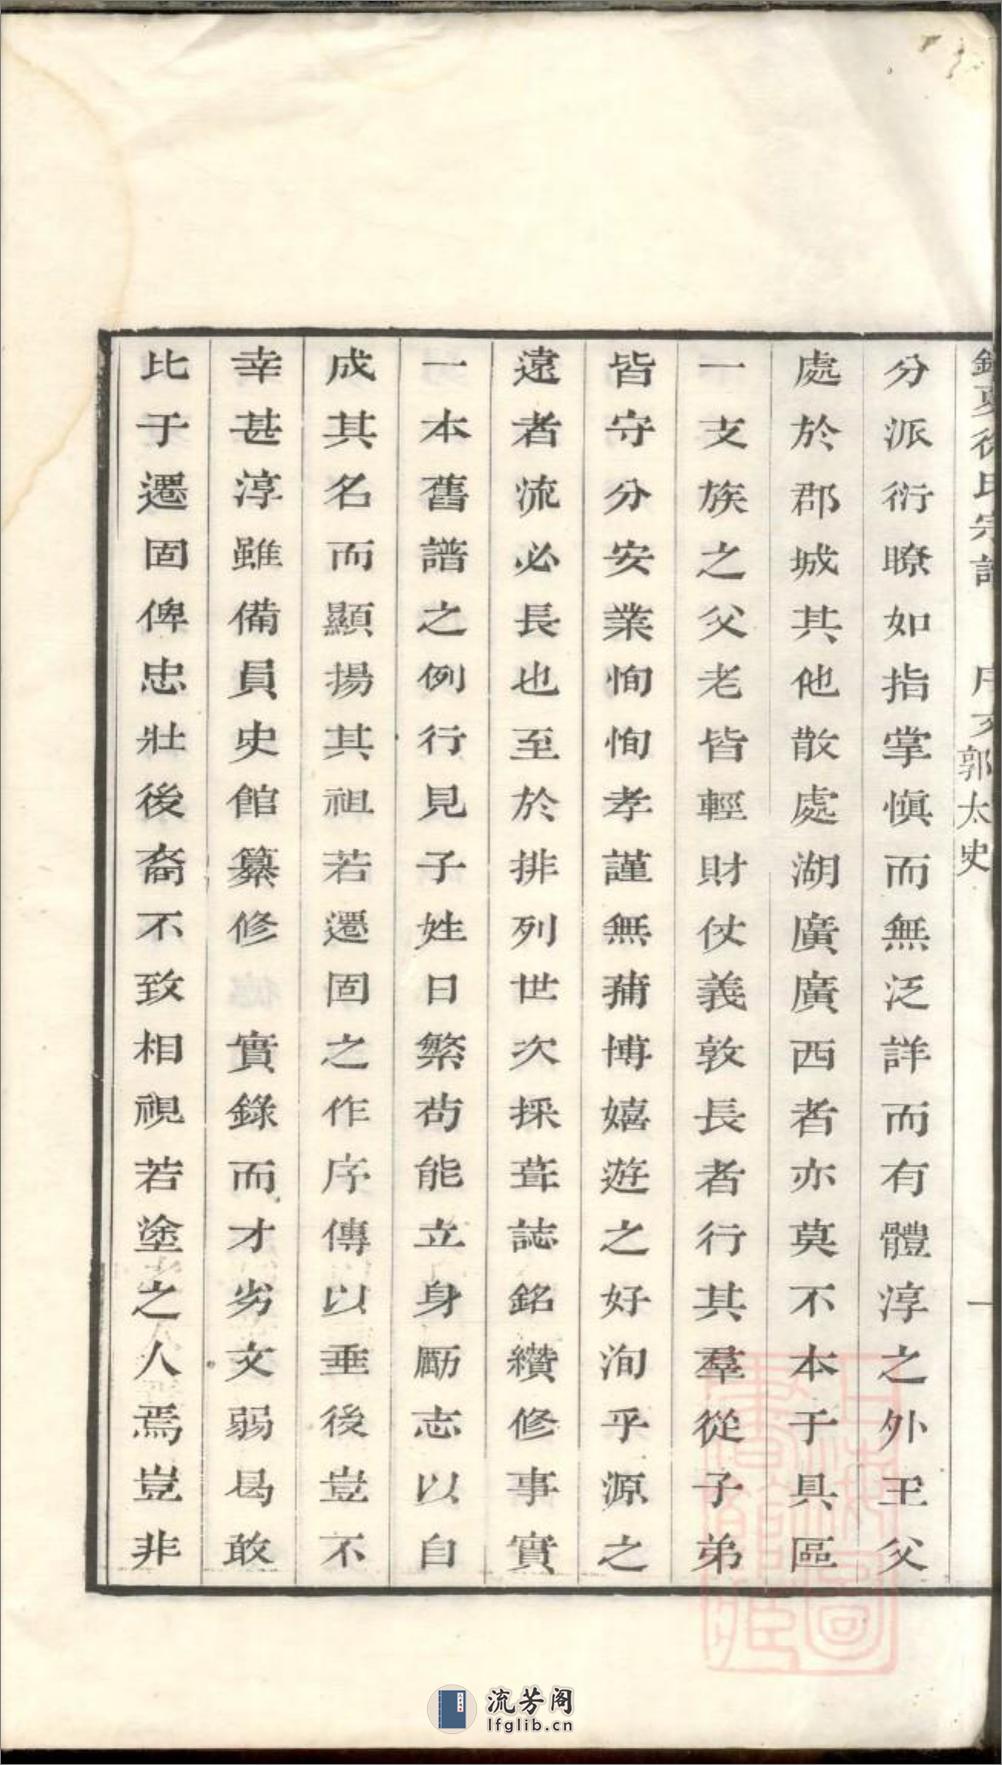 氏宗譜 序文 郭太史 一
分派衍瞭如指掌慎而無泛詳而有體淳之外王父
處於郡城其他散處湖廣廣西者亦莫不本于具區
一支族之父老皆輕財仗義敦長者行其羣從子弟
皆守分安業恂恂孝謹無蒱博嬉遊之好洵乎源之
遠者流必長也至於排列世次採葺誌銘纘修事實
一本舊譜之例行見子姓日繁茍能立身勵志以自
成其名而顯揚其祖若遷固之作序傳以垂後豈不
幸甚淳雖備員史館纂修 實錄而才劣文弱曷敢
比于遷固俾忠壯後裔不致相視若塗之人焉豈非
流芳阁
lfglib.cn